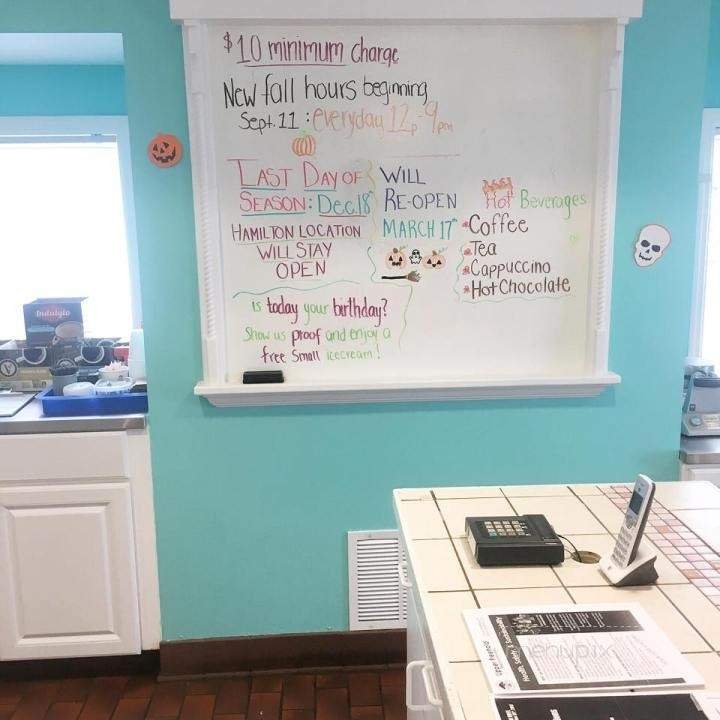 $10 minimum charge
New fall hours beginning
Sept. 11: everyday 12p-9pm
LAST DAY OF
SEASON: Dec. 18
HAMILTON LOCATION
WILL STAY
OPEN
WILL
RE-OPEN
MARCH 17th
Hot Beverages
Coffee
Tea
Cappuccino
Hot Chocolate
is today your birthday?
Show us proof and enjoy a
free small icecream!
Indulgio
Health, Safety & Sustainability
menupix